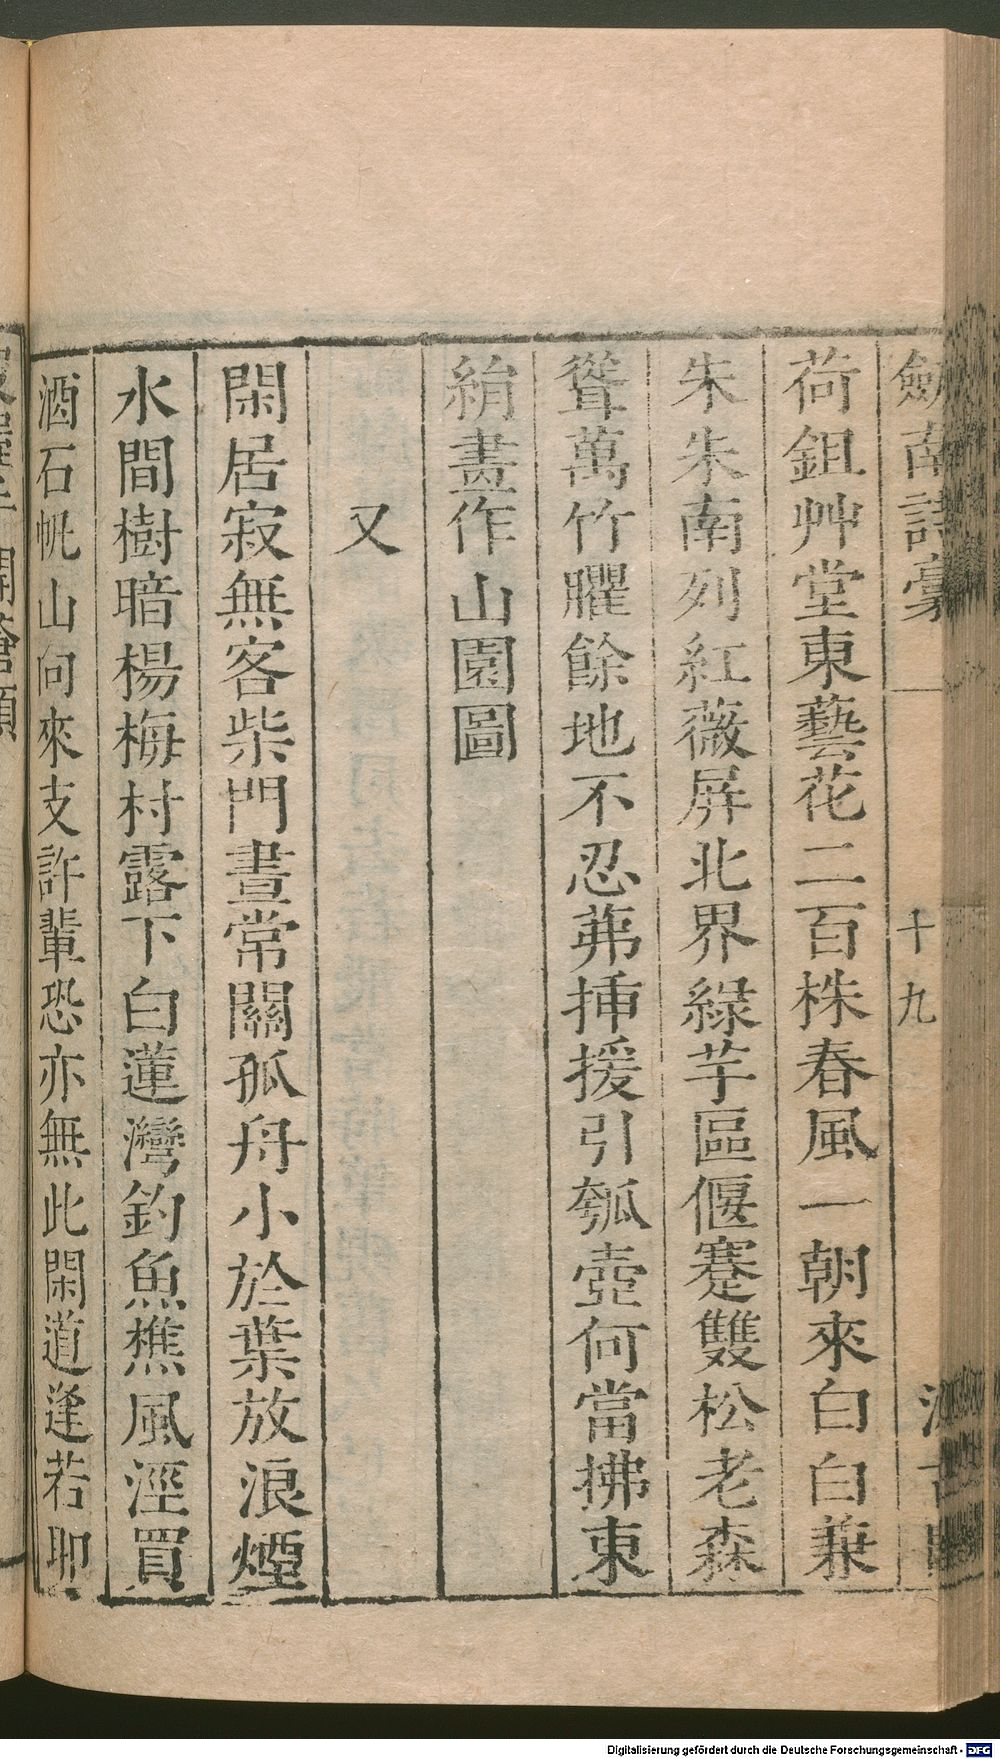 劒南詩稾
十九
荷鉏艸堂東藝花二百株春風一朝來白白兼
朱朱南列紅薇屏北界綠芋區偃蹇雙松老森
聳萬竹臞餘地不忍茀揷援引瓠壺何當拂東
絹畫作山園圖
又
閑居寂無客柴門晝常關孤舟小於葉放浪煙
水間樹暗楊梅村露下白蓮灣釣魚樵風涇買
酒石帆山向來支許輩恐亦無此閑道逢若耶
Digitalisierung gefördert durch die Deutsche Forschungsgemeinschaft - DFG